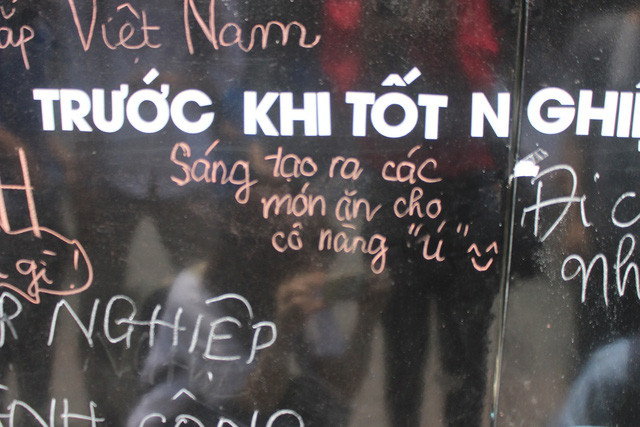 ấp Việt Nam
TRƯỚC KHI TỐT NGHIỆ
Sáng tạo ra các
món ăn cho
cô nàng "ú" ^^
H
gì!
Đi c
nh
R NGHIỆP
ÀNH CÔNG